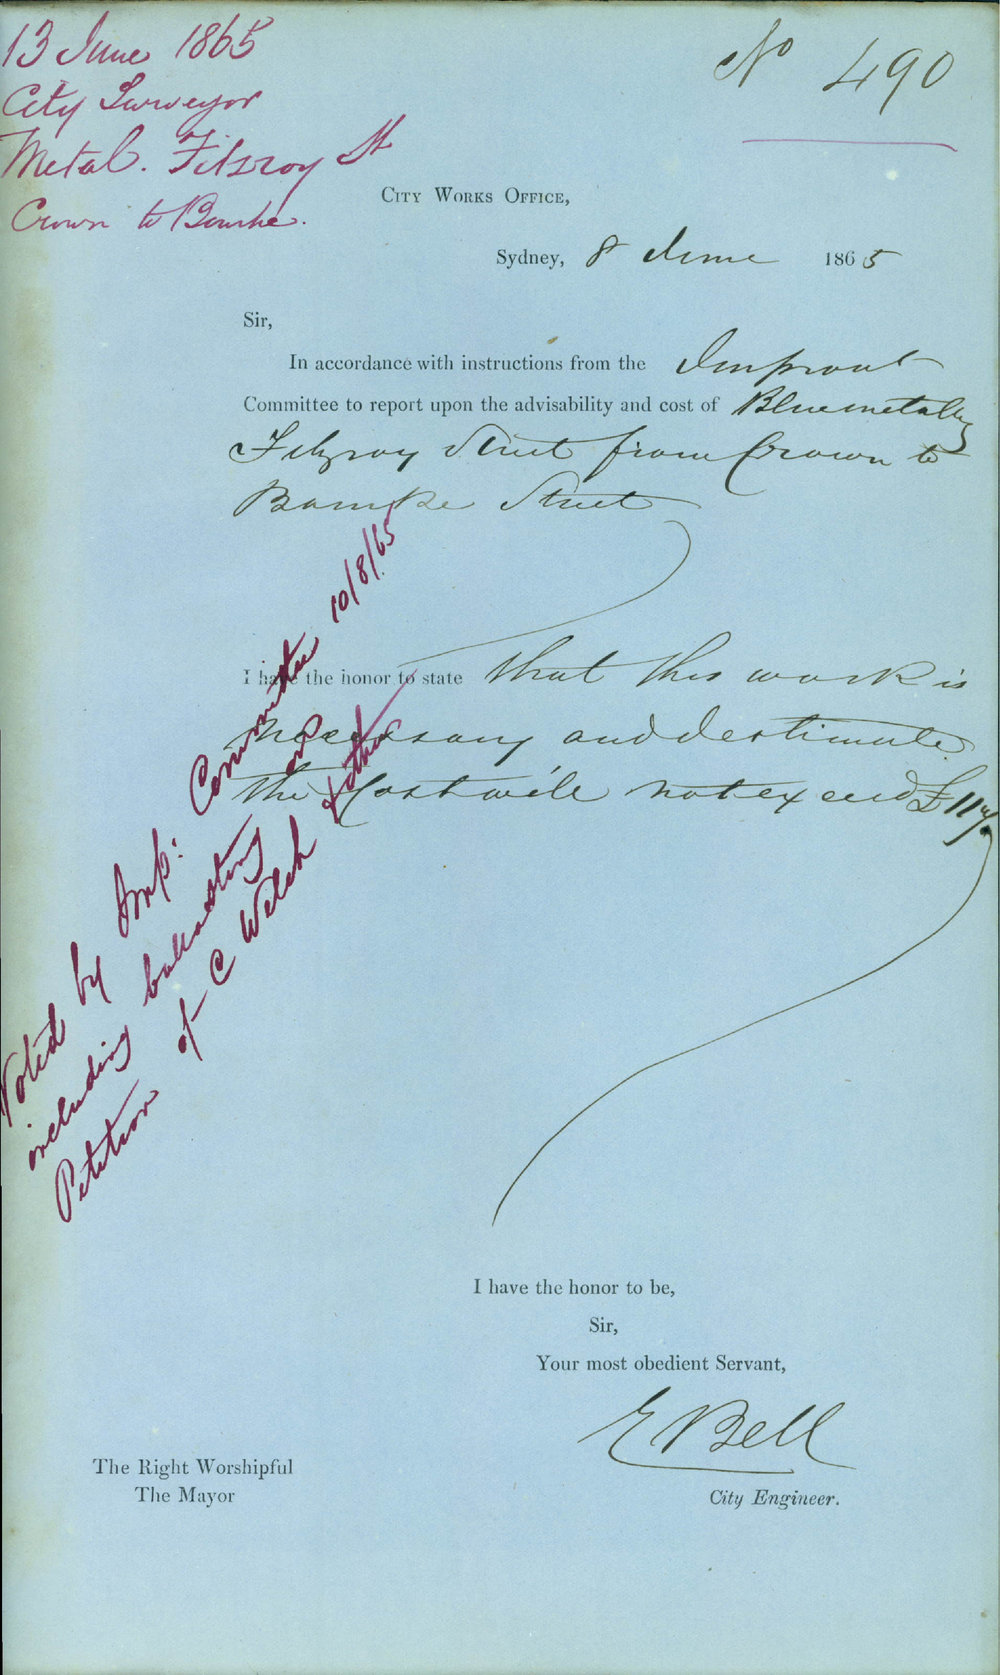 13 June 1865
City Surveyor
Metal. Fitzroy St
Crown to Bourke.
No 490
City Works Office,
Sydney, 8 June 1865
Sir,
In accordance with instructions from the Improvt
Committee to report upon the advisability and cost of Bluemetalling
Fitzroy Street from Crown to
Bourke Street
I have the honor to state that this work is
necessary and I estimate
the Cost will not exceed £117
Voted by Imp: Committee 10/8/65
including ballasting on
Petition of C Welch & others
I have the honor to be,
Sir,
Your most obedient Servant,
E Bell
City Engineer.
The Right Worshipful
The Mayor